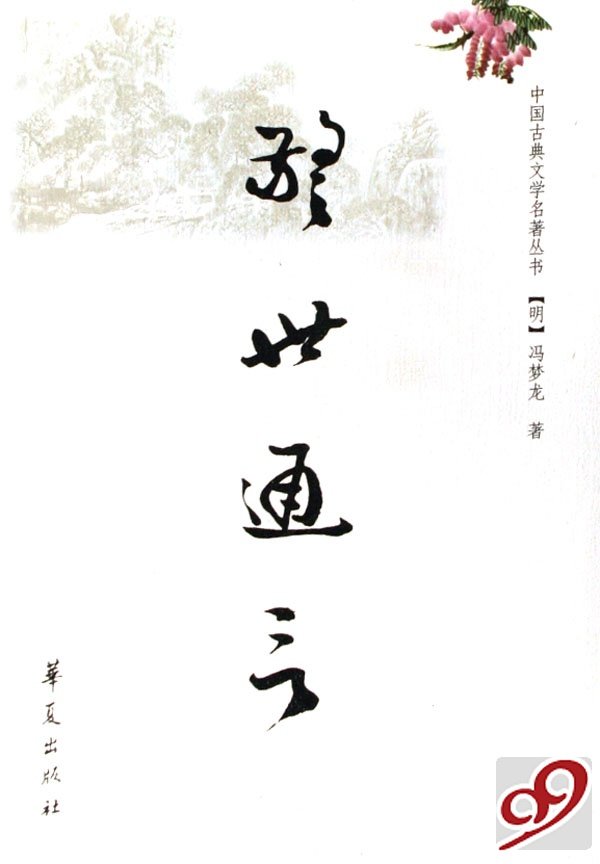 中国古典文学名著丛书 【明】冯梦龙 著
警世通言
華夏出版社
99